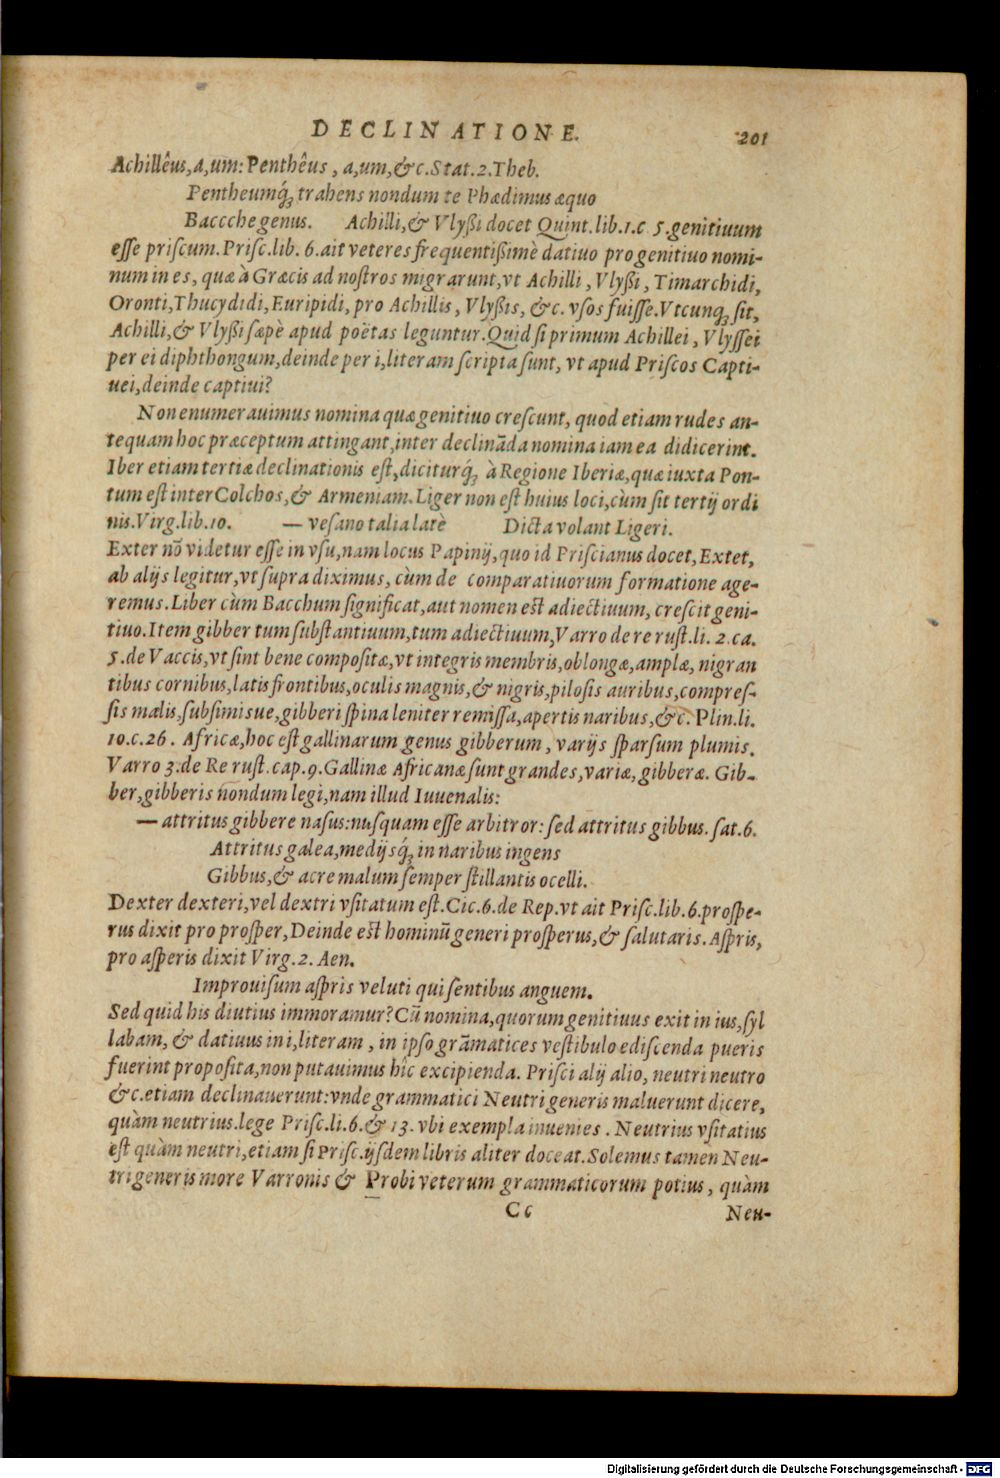 DECLINATIONE. 201
Achillêus, a, um: Penthêus, a, um, &c. Stat. 2. Theb.
Pentheumq́; trahens nondum te Phædimus æquo
Baccche genus. Achilli, & Vlyßi docet Quint. lib. 1. c 5. genitiuum
esse priscum. Prisc. lib. 6. ait veteres frequentißimè datiuo pro genitiuo nomi-
num in es, quæ à Græcis ad nostros migrarunt, vt Achilli, Vlyßi, Timarchidi,
Oronti, Thucydidi, Euripidi, pro Achillis, Vlyßis, &c. vsos fuisse. Vtcunq; sit,
Achilli, & Vlyßi sæpè apud poëtas leguntur. Quid si primum Achillei, Vlyssei
per ei diphthongum, deinde per i, literam scripta sunt, vt apud Priscos Capti-
uei, deinde captiui?
Non enumerauimus nomina quæ genitiuo crescunt, quòd etiam rudes an-
tequam hoc præceptum attingant, inter declinãda nomina iam ea didicerint.
Iber etiam tertiæ declinationis est, diciturq́; à Regione Iberiæ, quæ iuxta Pon-
tum est inter Colchos, & Armeniam. Liger non est huius loci, cùm sit tertij ordi
nis. Virg. lib. 10. — vesano talia latè Dicta volant Ligeri.
Exter nõ videtur esse in vsu, nam locus Papinij, quo id Priscianus docet, Extet,
ab alijs legitur, vt supra diximus, cùm de comparatiuorum formatione age-
remus. Liber cùm Bacchum significat, aut nomen est adiectiuum, crescit geni-
tiuo. Item gibber tum substantiuum, tum adiectiuum, Varro de re rust. li. 2 ca.
5. de Vaccis, vt sint bene compositæ, vt integris membris, oblongæ, amplæ, nigran
tibus cornibus, latis frontibus, oculis magnis, & nigris, pilosis auribus, compres-
sis malis, subsimisue, gibberi spina leniter remissa, apertis naribus, &c. Plin. li.
10. c. 26. Africæ, hoc est gallinarum genus gibberum, varijs sparsum plumis.
Varro 3. de Re rust. cap. 9. Gallinæ Africanæ sunt grandes, variæ, gibberæ. Gib-
ber, gibberis nondum legi, nam illud Iuuenalis:
— attritus gibbere nasus: nusquam esse arbitror: sed attritus gibbus. sat. 6.
Attritus galea, medijsq́; in naribus ingens
Gibbus, & acre malum semper stillantis ocelli.
Dexter dexteri, vel dextri vsitatum est. Cic. 6. de Rep. vt ait Prisc. lib. 6. prospe-
rus dixit pro prosper, Deinde est hominũ generi prosperus, & salutaris. Aspris,
pro asperis dixit Virg. 2. Aen.
Improuisum aspris veluti qui sentibus anguem.
Sed quid his diutius immoramur? Cũ nomina, quorum genitiuus exit in ius, syl
labam, & datiuus in i, literam, in ipso grãmatices vestibulo ediscenda pueris
fuerint proposita, non putauimus hîc excipienda. Prisci alij alio, neutri neutro
&c. etiam declinauerunt: vnde grammatici Neutri generis maluerunt dicere,
quàm neutrius. lege Prisc. li. 6. & 13. vbi exempla inuenies. Neutrius vsitatius
est quàm neutri, etiam si Prisc. ijsdem libris aliter doceat. Solemus tamen Neu-
tri generis more Varronis & Probi veterum grammaticorum potius, quàm
Cc Neu-
Digitalisierung gefördert durch die Deutsche Forschungsgemeinschaft - DFG